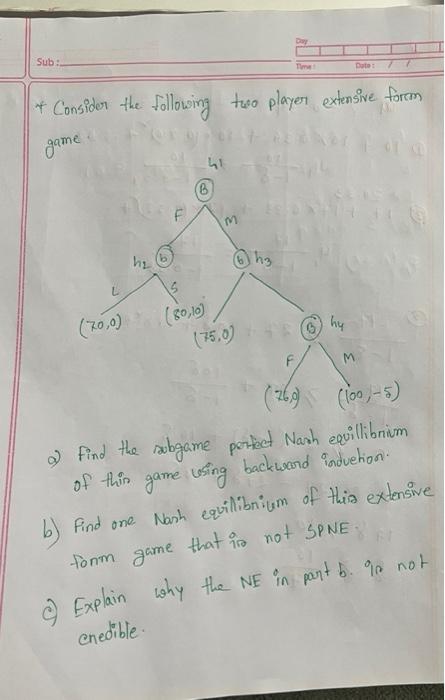 Day
Sub :
Time : Date : / /
* Consider the following two player extensive form
game.
h1
B
F M
h2 b b h3
L S
(70,0) (80,10) (75,0) B h4
F M
(76,9) (100,-5)
a) Find the subgame perfect Nash equillibrium
of this game using backward induction.
b) Find one Nash equilibrium of this extensive
form game that is not SPNE.
c) Explain why the NE in part b. is not
credible.